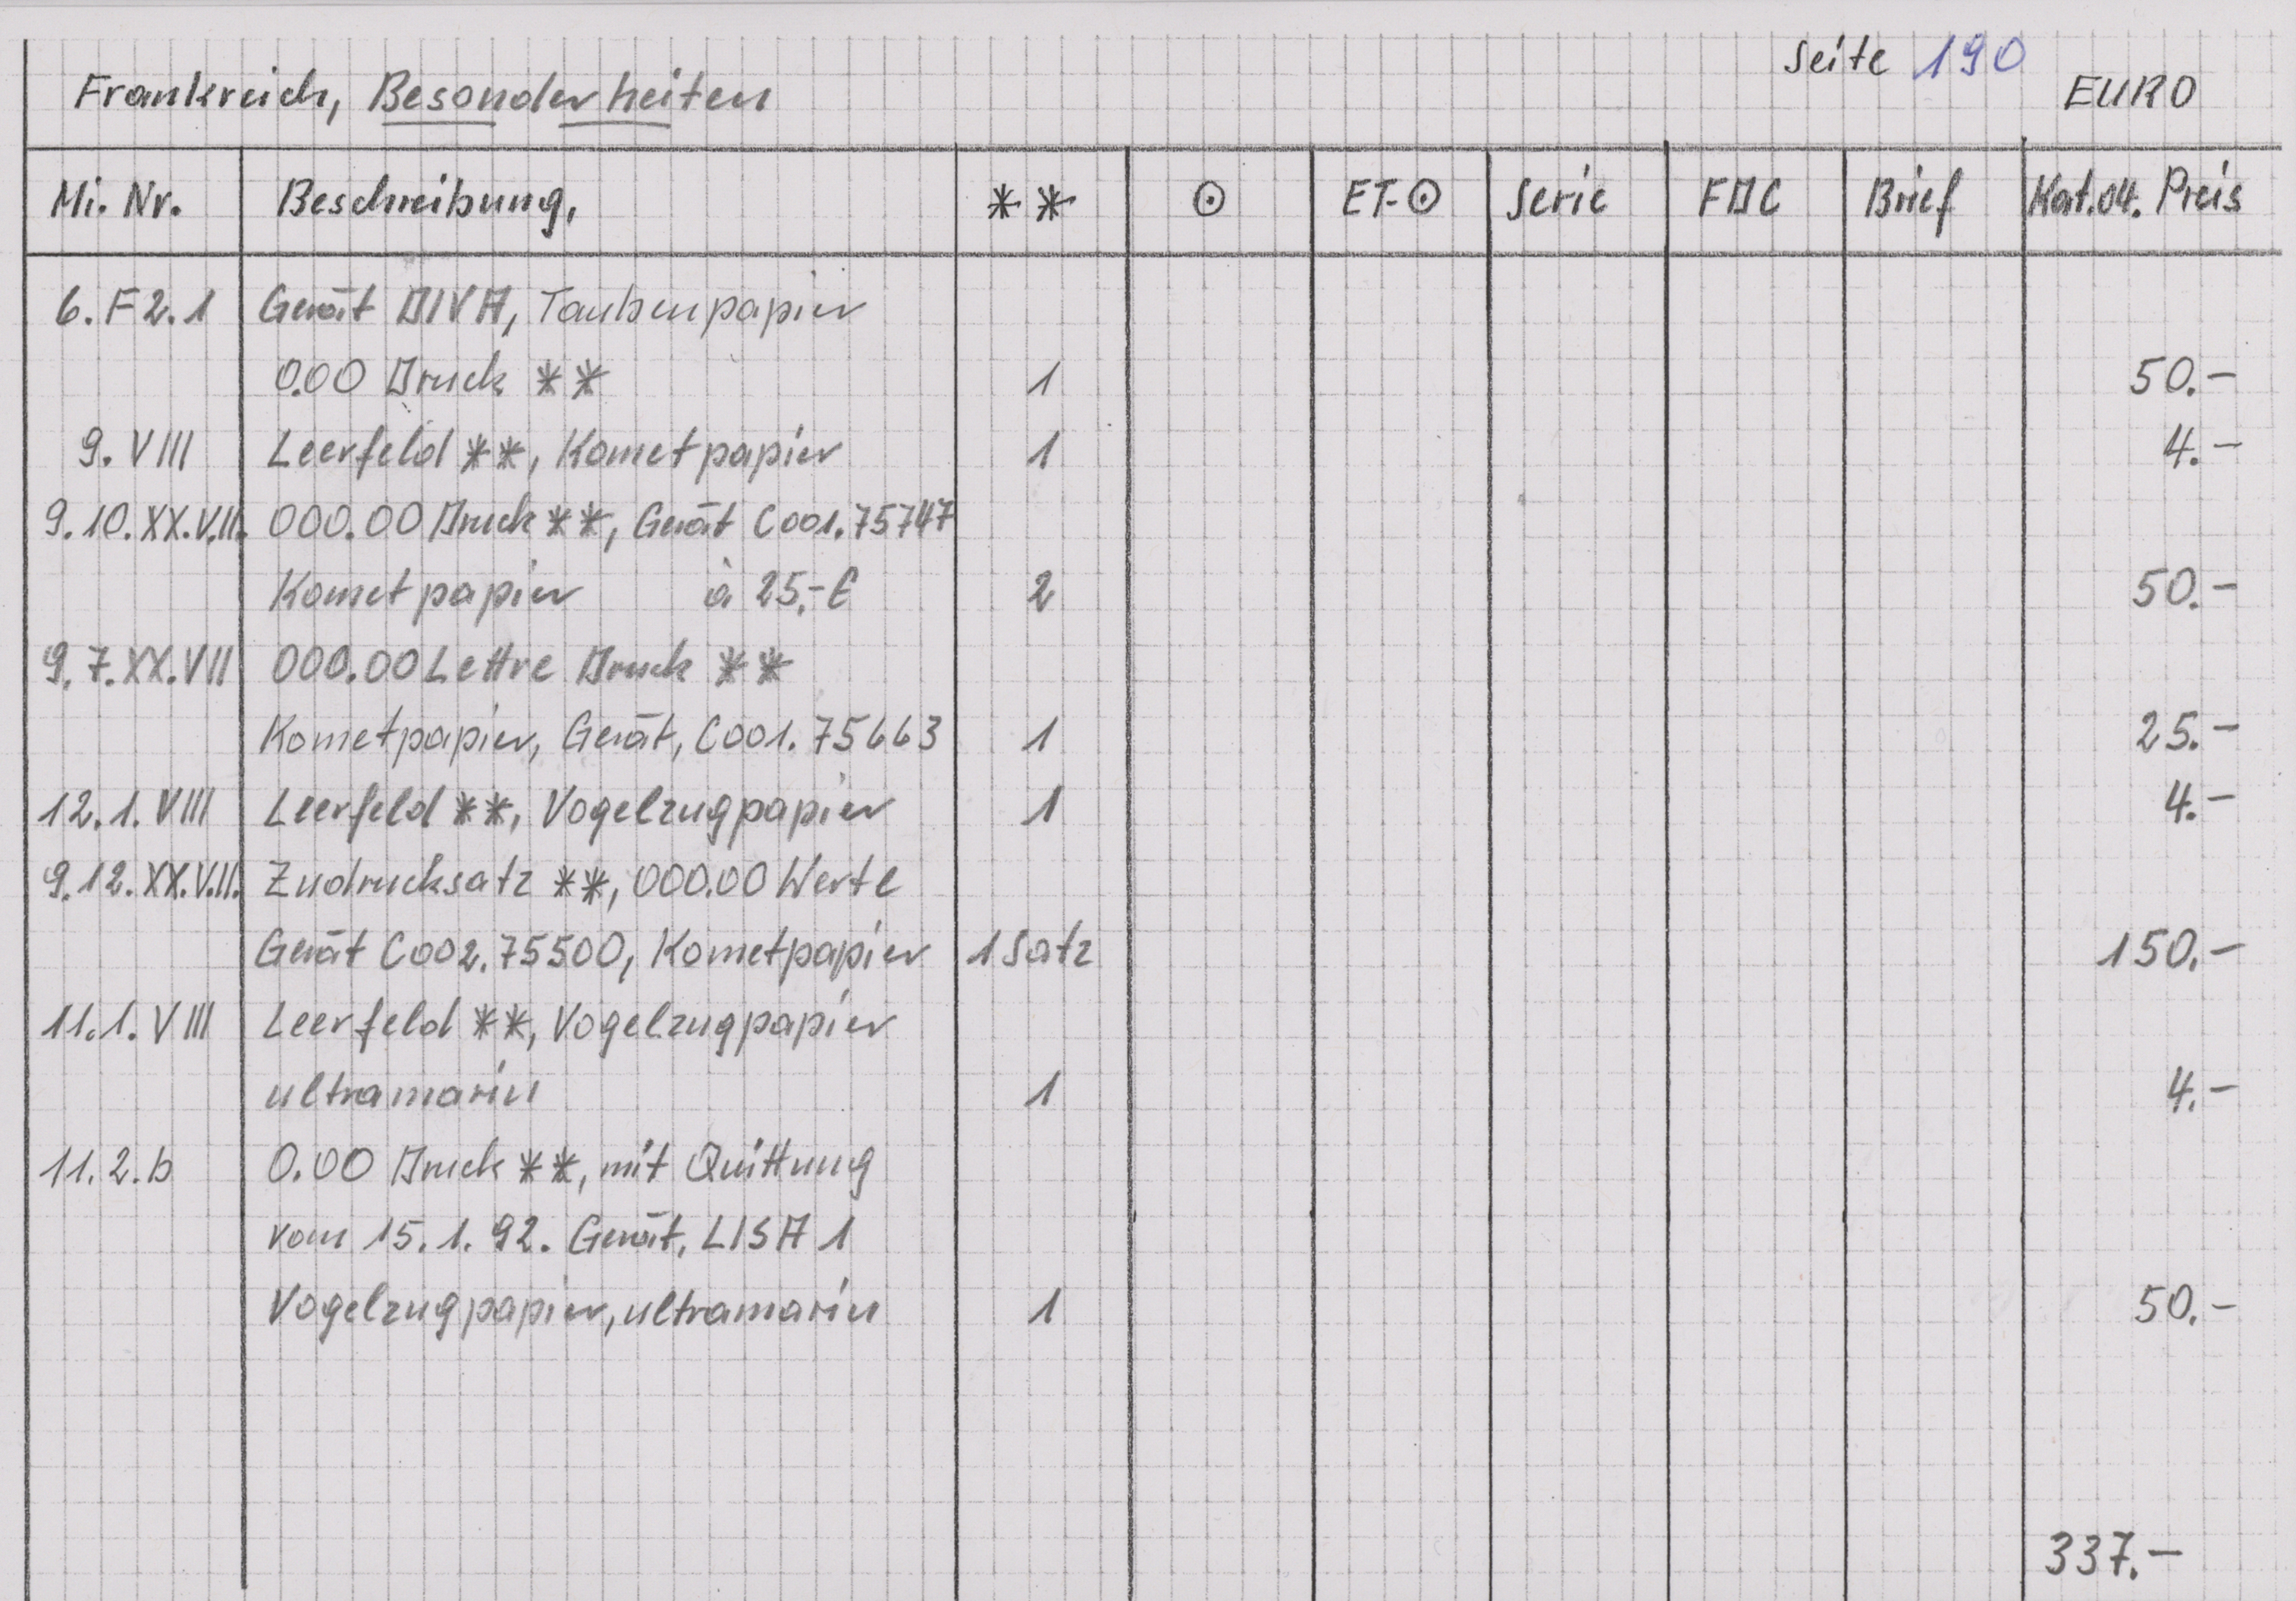 Seite 190
Frankreich, Besonderheiten EURO
Mi. Nr. Beschreibung, ** ⊙ ET-⊙ Serie FDC Brief Kat.04. Preis
6. F 2. 1 Gerät DIVA, Taubenpapier
0.00 Druck ** 1 50.-
9. VIII Leerfeld **, Kometpapier 1 4.-
9.10.XX.V.II. 000.00 Druck **, Gerät C001.75747
Kometpapier à 25,-€ 2 50.-
9.7.XX.VII 000.00 Lettre Druck **
Kometpapier, Gerät, C001.75663 1 25.-
12.1.VIII Leerfeld **, Vogelzugpapier 1 4.-
9.12.XX.V.II. Zudrucksatz **, 000.00 Werte
Gerät C002.75500, Kometpapier 1 Satz 150.-
11.1.VIII Leerfeld **, Vogelzugpapier
ultramarin 1 4.-
11.2.b 0.00 Druck **, mit Quittung
vom 15.1.92. Gerät, LISA 1
Vogelzugpapier, ultramarin 1 50.-
337.-